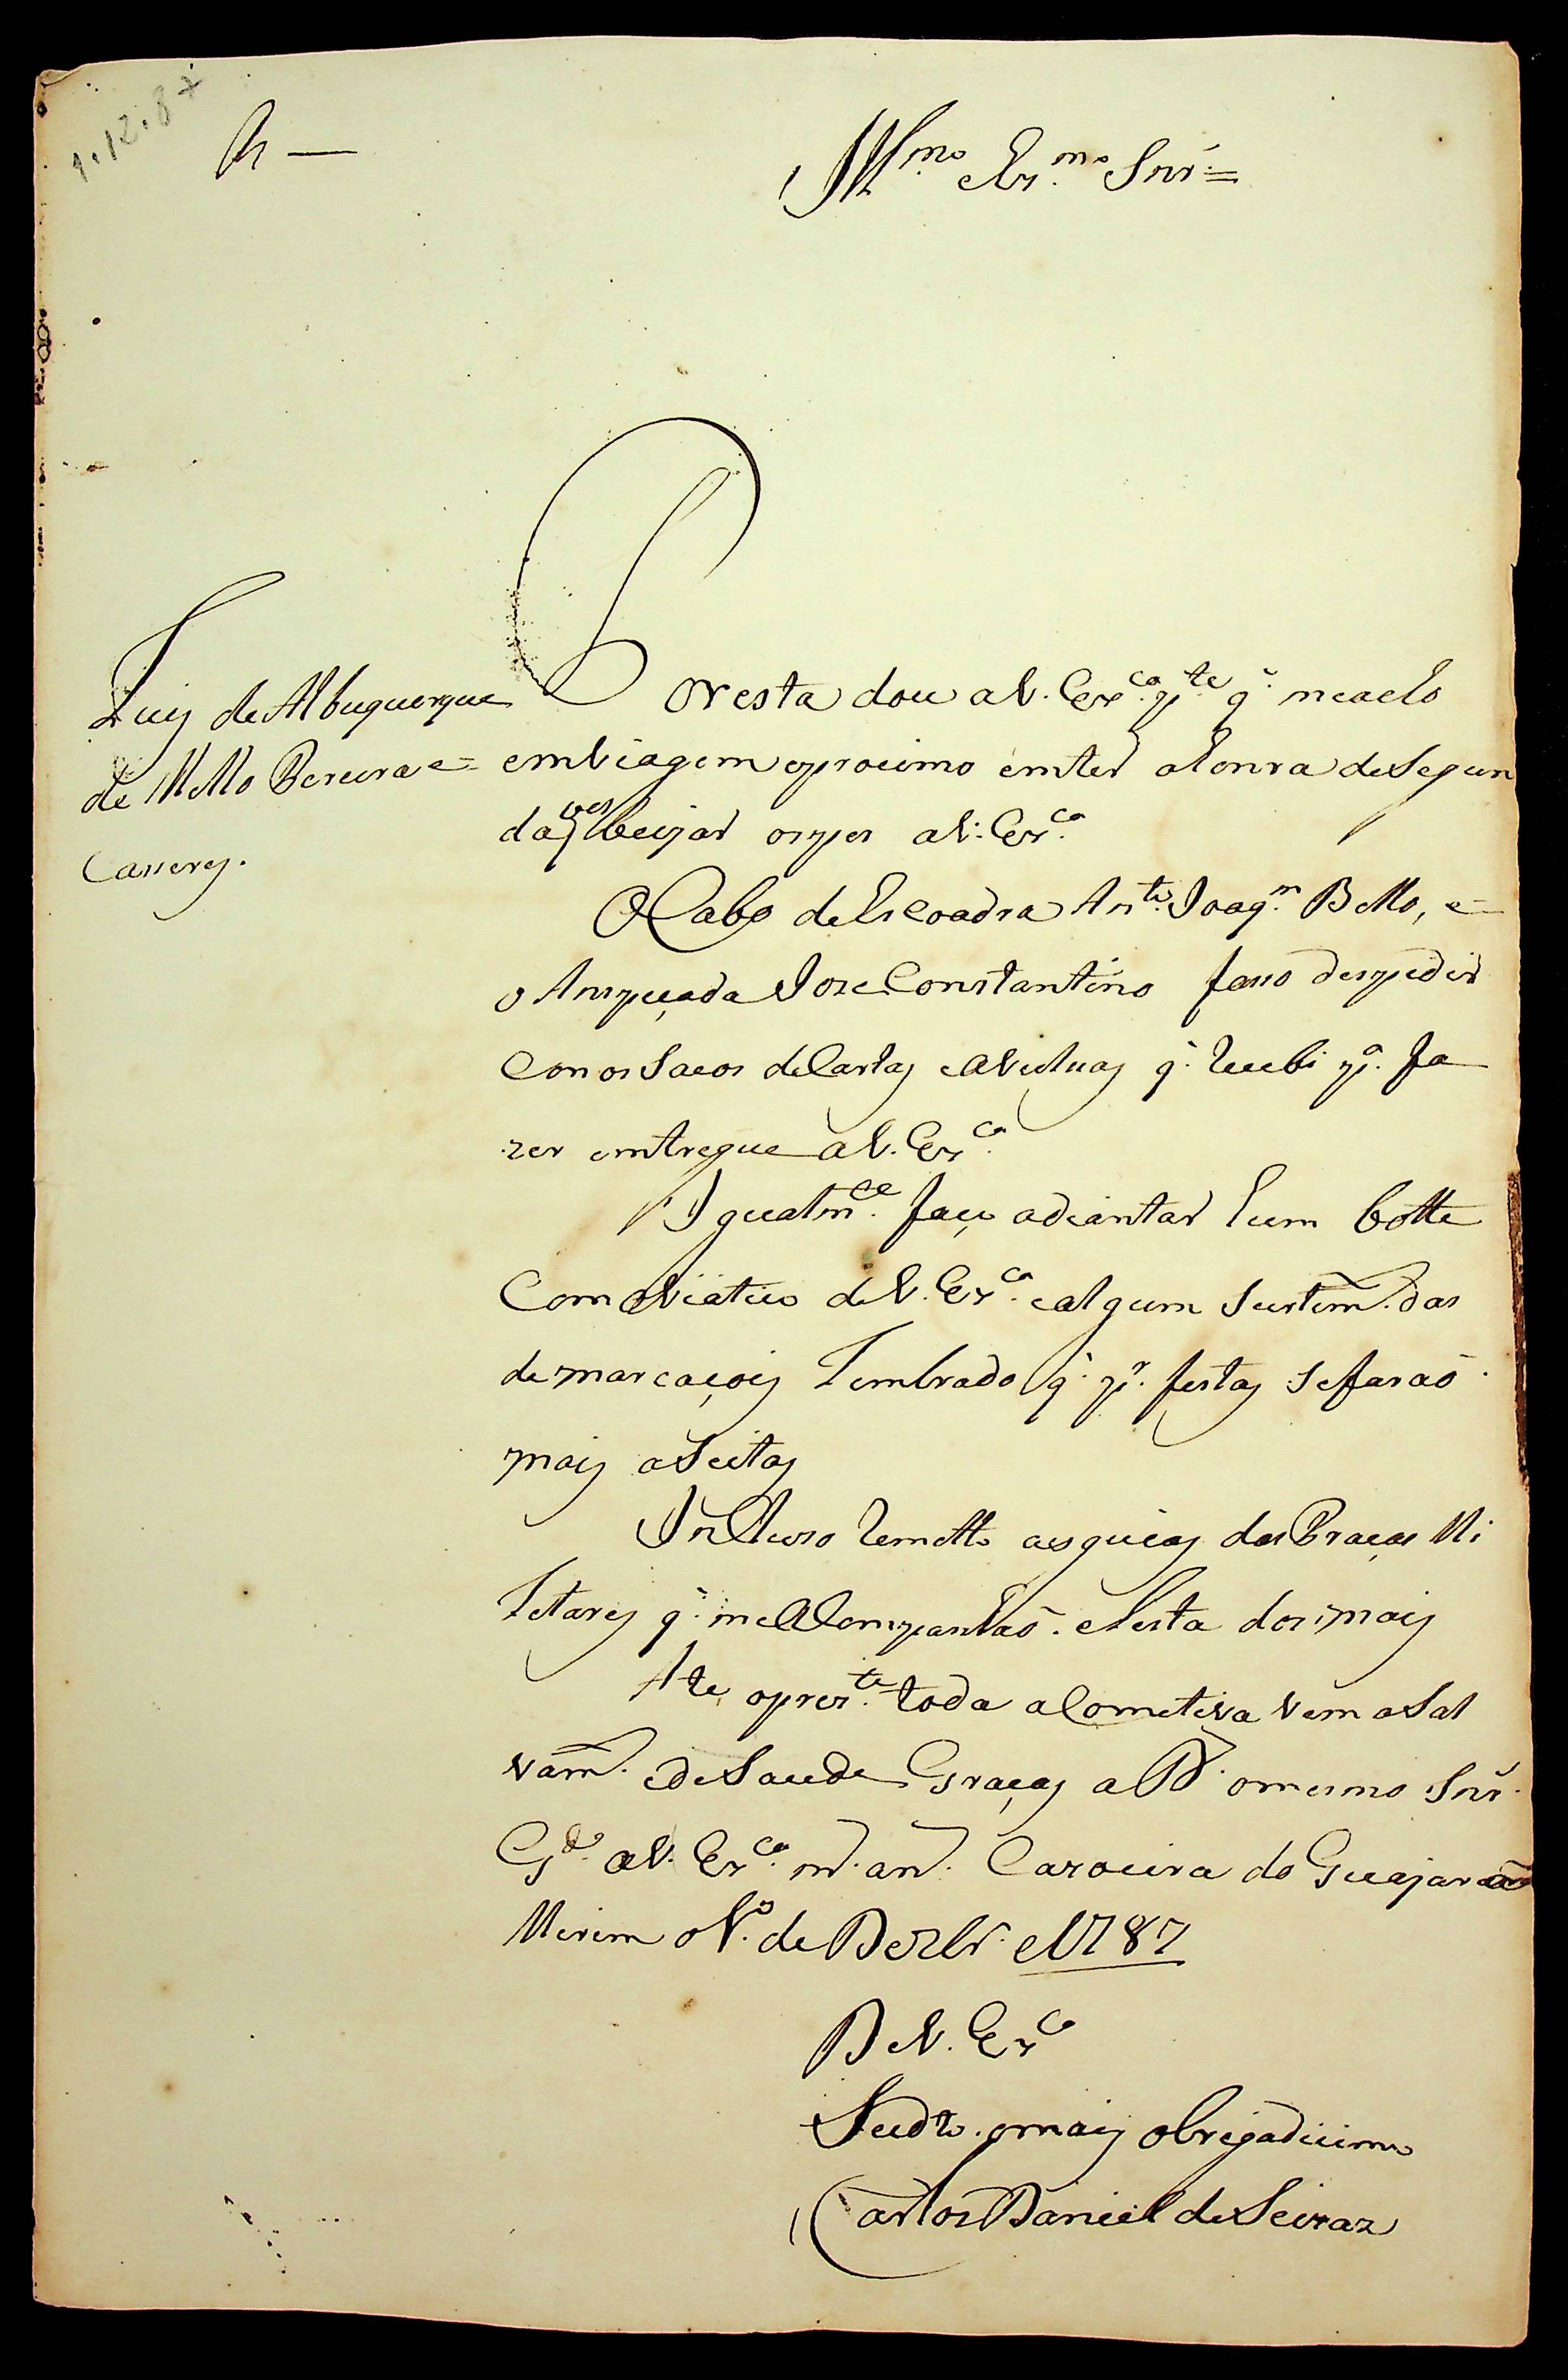 1.12.87
R —
Illmo. e Exmo. Snr. =
Por esta dou a V. Exca. pte. q. me acho
Luis de Albuquerque
de Mello Pereira e =
Casseres.
em viagem e proximo em ter a honra de Segun
da ves beijar os pes a V. Exca.
O Cabo de Escoadra Anto. Joaqm. Bello, e
o Anspeçada Joze Constantino faço despedir
Con os Sacos de Cartas e Avultuas q. recebi pa. fa
zer emtregue a V. Exca.
Igualmte. faço adiantar hum botte
Com o Viatico de V. Exca. e algum Sustim. das
demarcaçois Lembrado q. pr. festas se farão
mais aSeitas
Incluzo remetto as guias das Praças Mi
litares q. me aCompanhão. e Lista dos mais
Ate o preste. toda a Cometiva vem a Sal
vam. e de Saude Graças a D. o mesmo Snr.
Gde. a V. Exca. m. an. Caxoeira do Guajara
Merim o 1º. de Dezbr. e 1787
De V. Exca
Sudto. o mais obrigadicimo
Carlos Daniel de Seixas